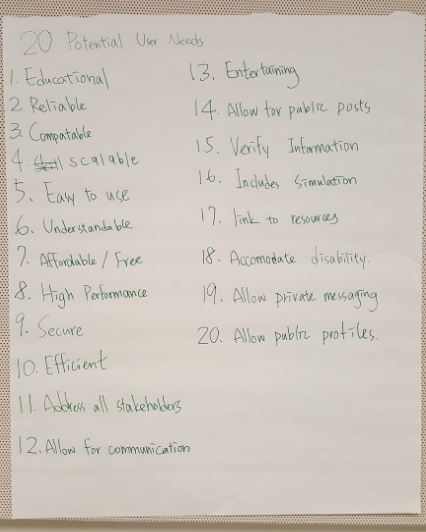 20 Potential User Needs
1. Educational
2. Reliable
3. Compatable
4 scalable
5. Easy to use
6. Understandable
7. Affordable / Free
8. High Performance
9. Secure
10. Efficient
11. Address all stakeholders
12. Allow for communication
13. Entertaining
14. Allow for public posts
15. Verify Information
16. Includes Simulation
17. link to resources
18. Accomodate disability.
19. Allow private messaging
20. Allow public profiles.